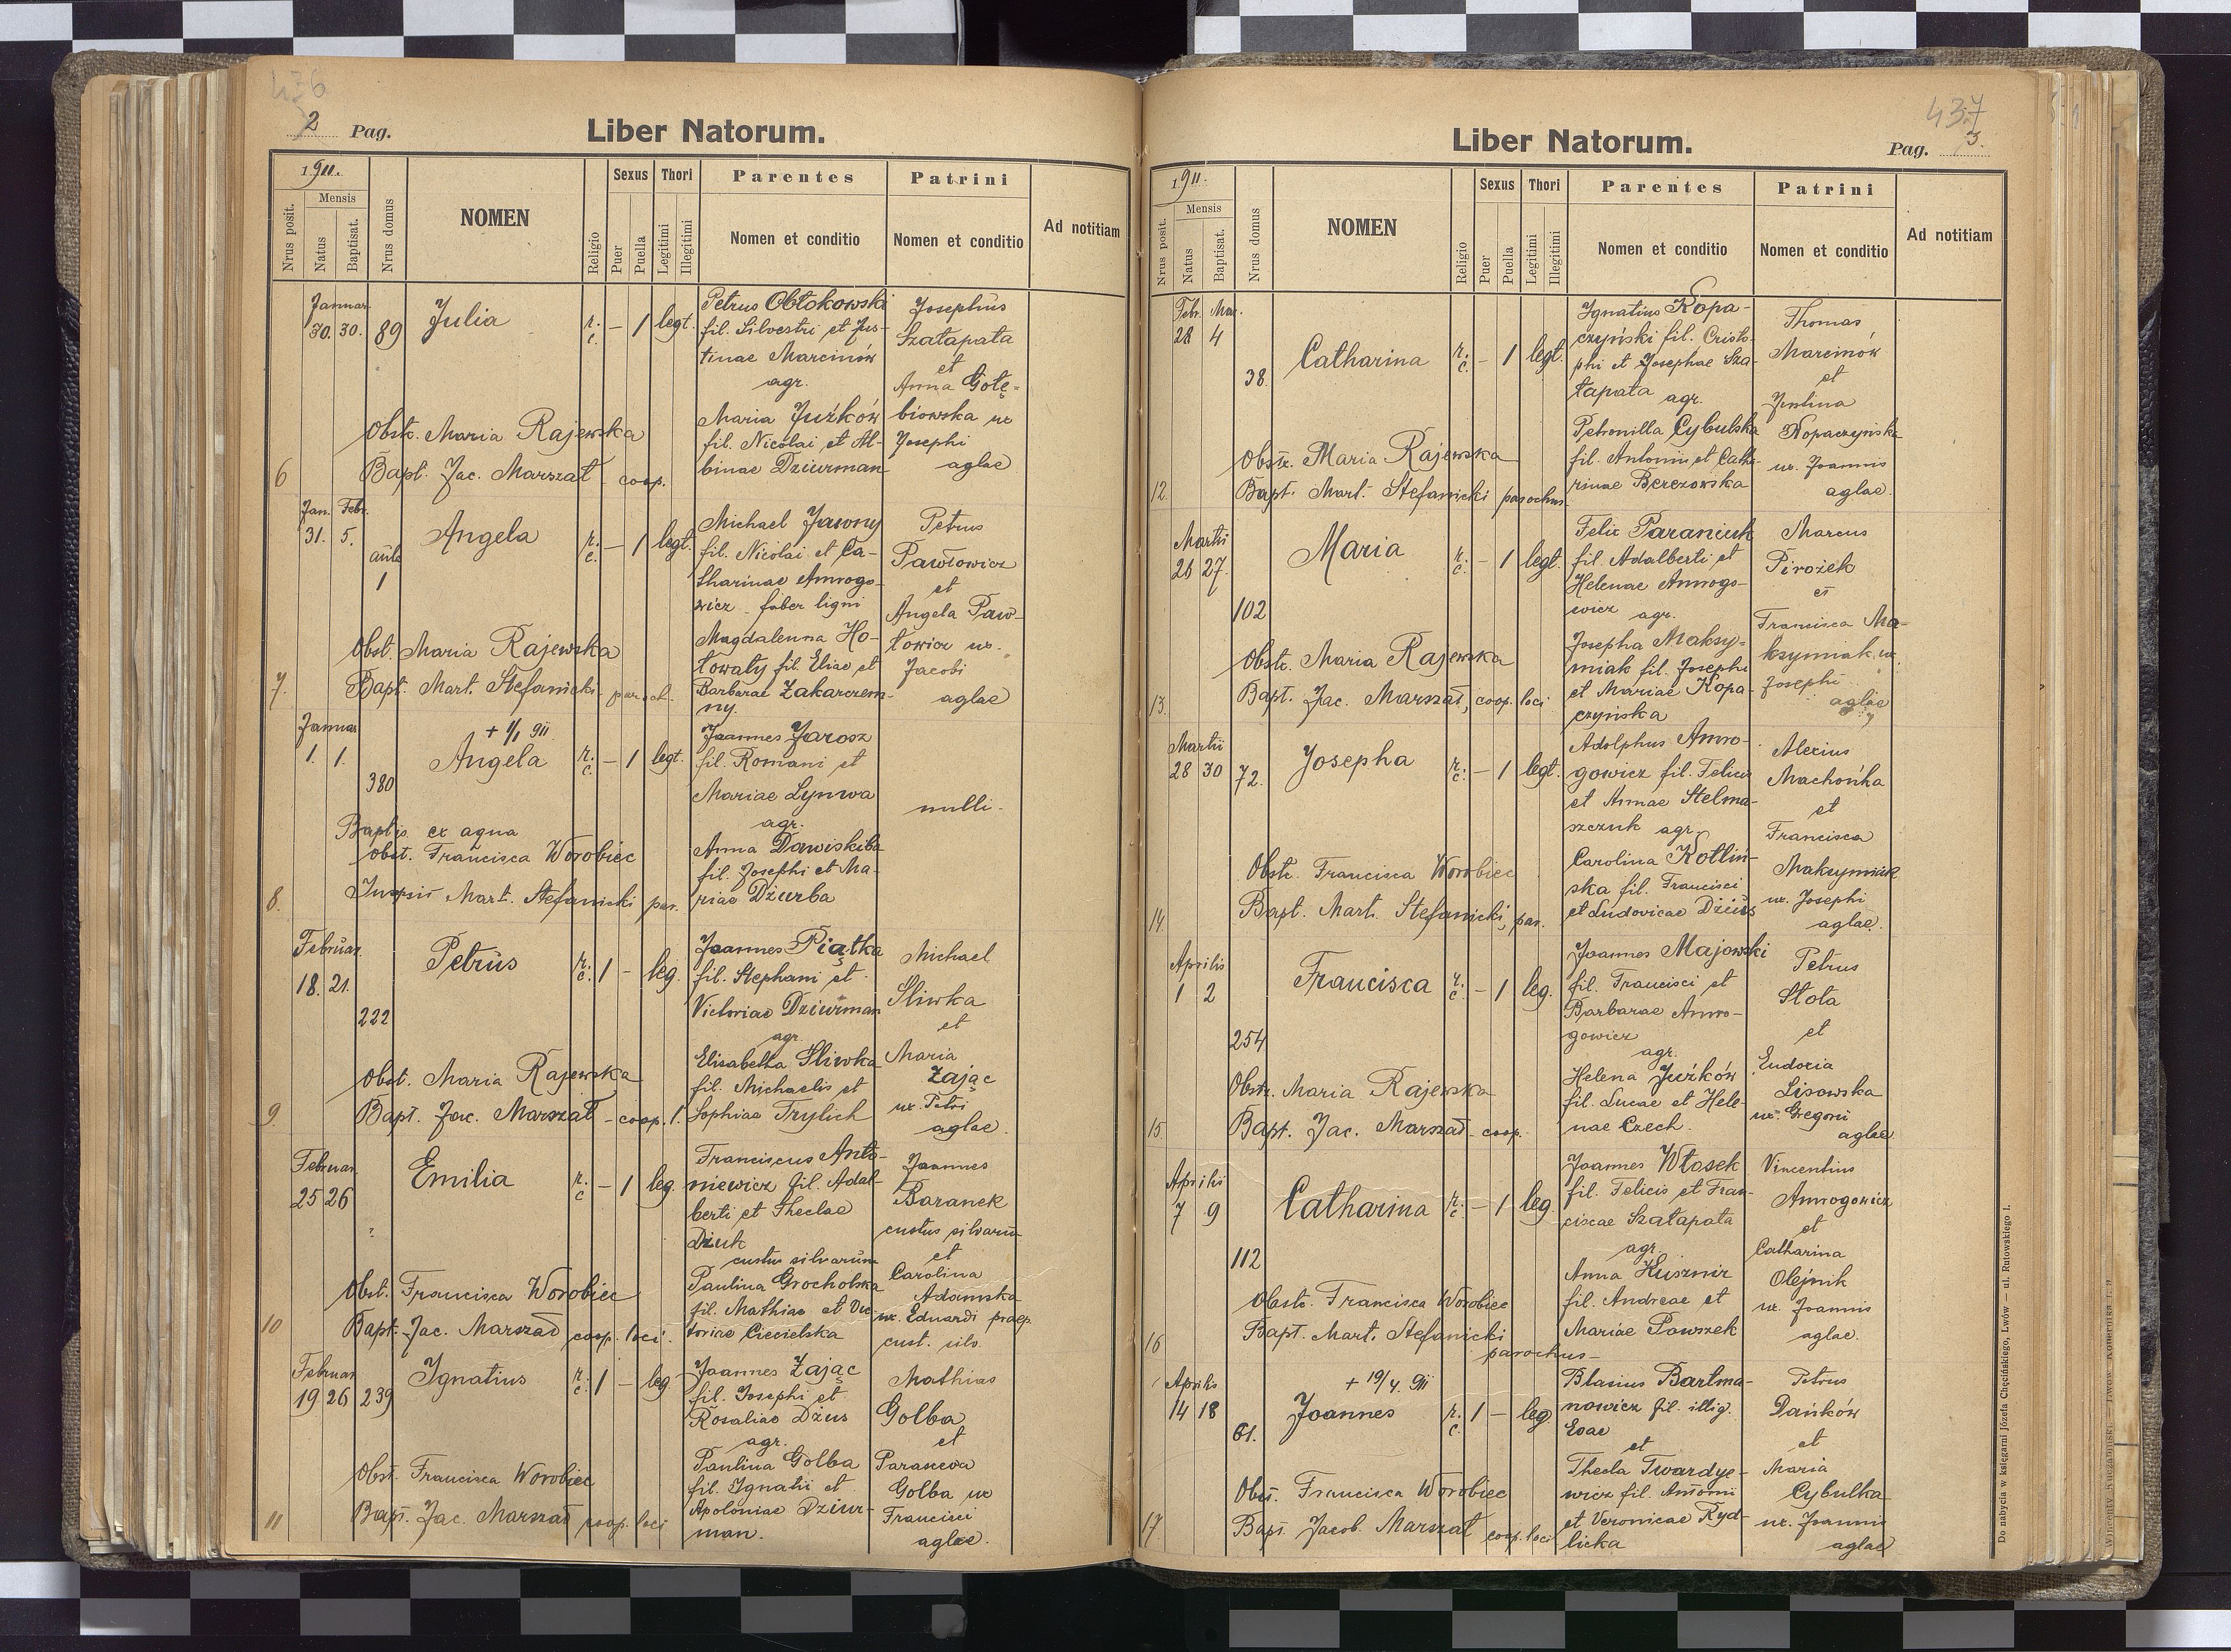 436
2 Pag.
Liber Natorum.
1911.
Nrus posit.
Mensis
Natus
Baptisat.
Nrus domus
NOMEN
Religio
Sexus
Puer
Puella
Thori
Legitimi
Illegitimi
Parentes
Nomen et conditio
Patrini
Nomen et conditio
Ad notitiam
6
Januar.
30. 30. 89
Julia
r. c. – 1 legt.
Petrus Obłokowski
fil. Silvestri et Jus-
tinae Marcinów
agr.
Maria Juźków
fil. Nicolai et Al-
binae Dziurman
Josephus
Szałapata
et
Anna Gołę-
biowska ux
Josephi
aglae
Obstr. Maria Rajewska
Bapt. Jac. Marszał coop.
7.
Jan. Febr.
31. 5.
aula
1
Angela
r. c. – 1 legt.
Michael Jawny
fil. Nicolai et Ca-
tharinae Amrogo-
wicz – faber ligni
Magdalenna Ho-
łowaty fil. Eliae et
Barbarae Zakarczem-
ny.
Petrus
Pawłowicz
et
Angela Paw-
łowicz ux.
Jacobi
aglae
Obst. Maria Rajewska
Bapt. Mart. Stefanicki paroch.
8.
Januar
1. 1.
380
+ 1/1 911
Angela
r. c. – 1 legt.
Joannes Jarosz
fil. Romani et
Mariae Lynwa
agr.
Anna Dawiskiba
fil. Josephi et Ma-
riae Dziurba
nulli.
Baptis. ex aqua
obst. Francisca Worobiec
Mart. Stefanicki par.
9.
Februar.
18. 21.
222
Petrus
r. c. 1 – leg.
Joannes Piątka
fil. Stephani et
Victoriae Dziurman
agr.
Elisabetha Śliwka
fil. Michaelis et
Sophiae Trylich
Michael
Śliwka
et
Maria
Zając
ux. Petri
aglae.
Obst. Maria Rajewska
Bapt. Jac. Marszał – coop. l.
10
Februar.
25 26
?
Emilia
r. c – 1 leg.
Franciscus Anto-
niewicz fil. Adal-
berti et Theclae
Dziuk
custus silvarum
Paulina Grocholska
fil. Mathiae et Vic-
toriae Ciecielska
Joannes
Baranek
custus silvarum
et
Carolina
Adamska
ux. Eduardi praep.
cust. silv.
Obst. Francisca Worobiec
Bapt. Jac. Marszał coop. loci.
11
Februar
19 26 239
Ignatius
r. c. 1 – leg.
Joannes Zając
fil. Josephi et
Rosaliae Dżus
agr.
Paulina Golba
fil. Ignatii et
Apoloniae Dziur-
man.
Mathias
Golba
et
Parasceva
Golba ux
Francisci
aglae.
Obst. Francisca Worobiec
Bapt. Jac. Marszał coop. loci
437
Liber Natorum.
Pag. 3.
1911.
Nrus posit.
Mensis
Natus
Baptisat.
Nrus domus
NOMEN
Religio
Sexus
Puer
Puella
Thori
Legitimi
Illegitimi
Parentes
Nomen et conditio
Patrini
Nomen et conditio
Ad notitiam
12.
Febr. Mar.
28 4
38.
Catharina
r. c. – 1 legt.
Ignatius Kopa-
czyński fil. Cristo-
phi et Josephae Sza-
łapata agr.
Petronilla Cybulska
fil. Antonii et Catha-
rinae Berezowska
Thomas
Marcinów
et
Justina
Kopaczyńska
ux. Joannis
aglae.
Obstr. Maria Rajewska
Bapt. Mart. Stefanicki parochus
13.
Martii
26 27.
102
Maria
r. c. – 1 legt.
Felix Paraniuk
fil. Adalberti et
Helenae Amrogo-
wicz agr.
Josepha Maksy-
miak fil. Josephi
et Mariae Kopa-
czyńska
Marcus
Pirożek
et
Francisca Ma-
ksymiak ux.
Josephi
aglae
Obstr. Maria Rajewska
Bapt. Jac. Marszał, coop. loci
14.
Martii
28 30 72.
Josepha
r. c. – 1 legt.
Adolphus Amro-
gowicz fil. Felicis
et Annae Stelma-
szczuk agr.
Carolina Kotliń-
ska fil. Francisci
et Ludovicae Dzius
Alexius
Machońka
et
Francisca
Maksymiak
ux. Josephi
aglae.
Obstr. Francisca Worobiec
Bapt. Mart. Stefanicki, par.
15
Aprilis
1 2
254
Francisca
r. c. – 1 leg.
Joannes Majowski
fil. Francisci et
Barbarae Amro-
gowicz
agr.
Helena Juźków
fil. Lucae et Hele-
nae Czech.
Petrus
Słota
et
Eudocia
Lisowska
ux. Gregorii
aglae
Obstr. Maria Rajewska
Bapt. Jac. Marszał – coop.
16
Aprilis
7 9
112
Catharina
r. c. – 1 leg.
Joannes Włosek
fil. Felicis et Fran-
ciscae Szałapata
agr.
Anna Kusznir
fil. Andreae et
Mariae Powszek
Vincentius
Amrogowicz
et
Catharina
Olejnik
ux. Joannis
aglae.
Obstr. Francisca Worobiec
Bapt. Mart. Stefanicki
parochus –
17.
Aprilis
14 18
61.
+ 19/4. 911
Joannes
r. c. 1 – leg.
Blasius Bartma-
nowicz fil. illig.
Evae
et
Thecla Twardye-
wicz fil. Antoni
et Veronicae Ryd-
licka
Petrus
Dańków
et
Maria
Cybulka
ux. Joannis
aglae
Obst. Francisca Worobiec
Bapt. Jacob. Marszał coop. loci
Do nabycia w księgarni Józefa Chęcińskiego, Lwów — ul. Rutowskiego 1.